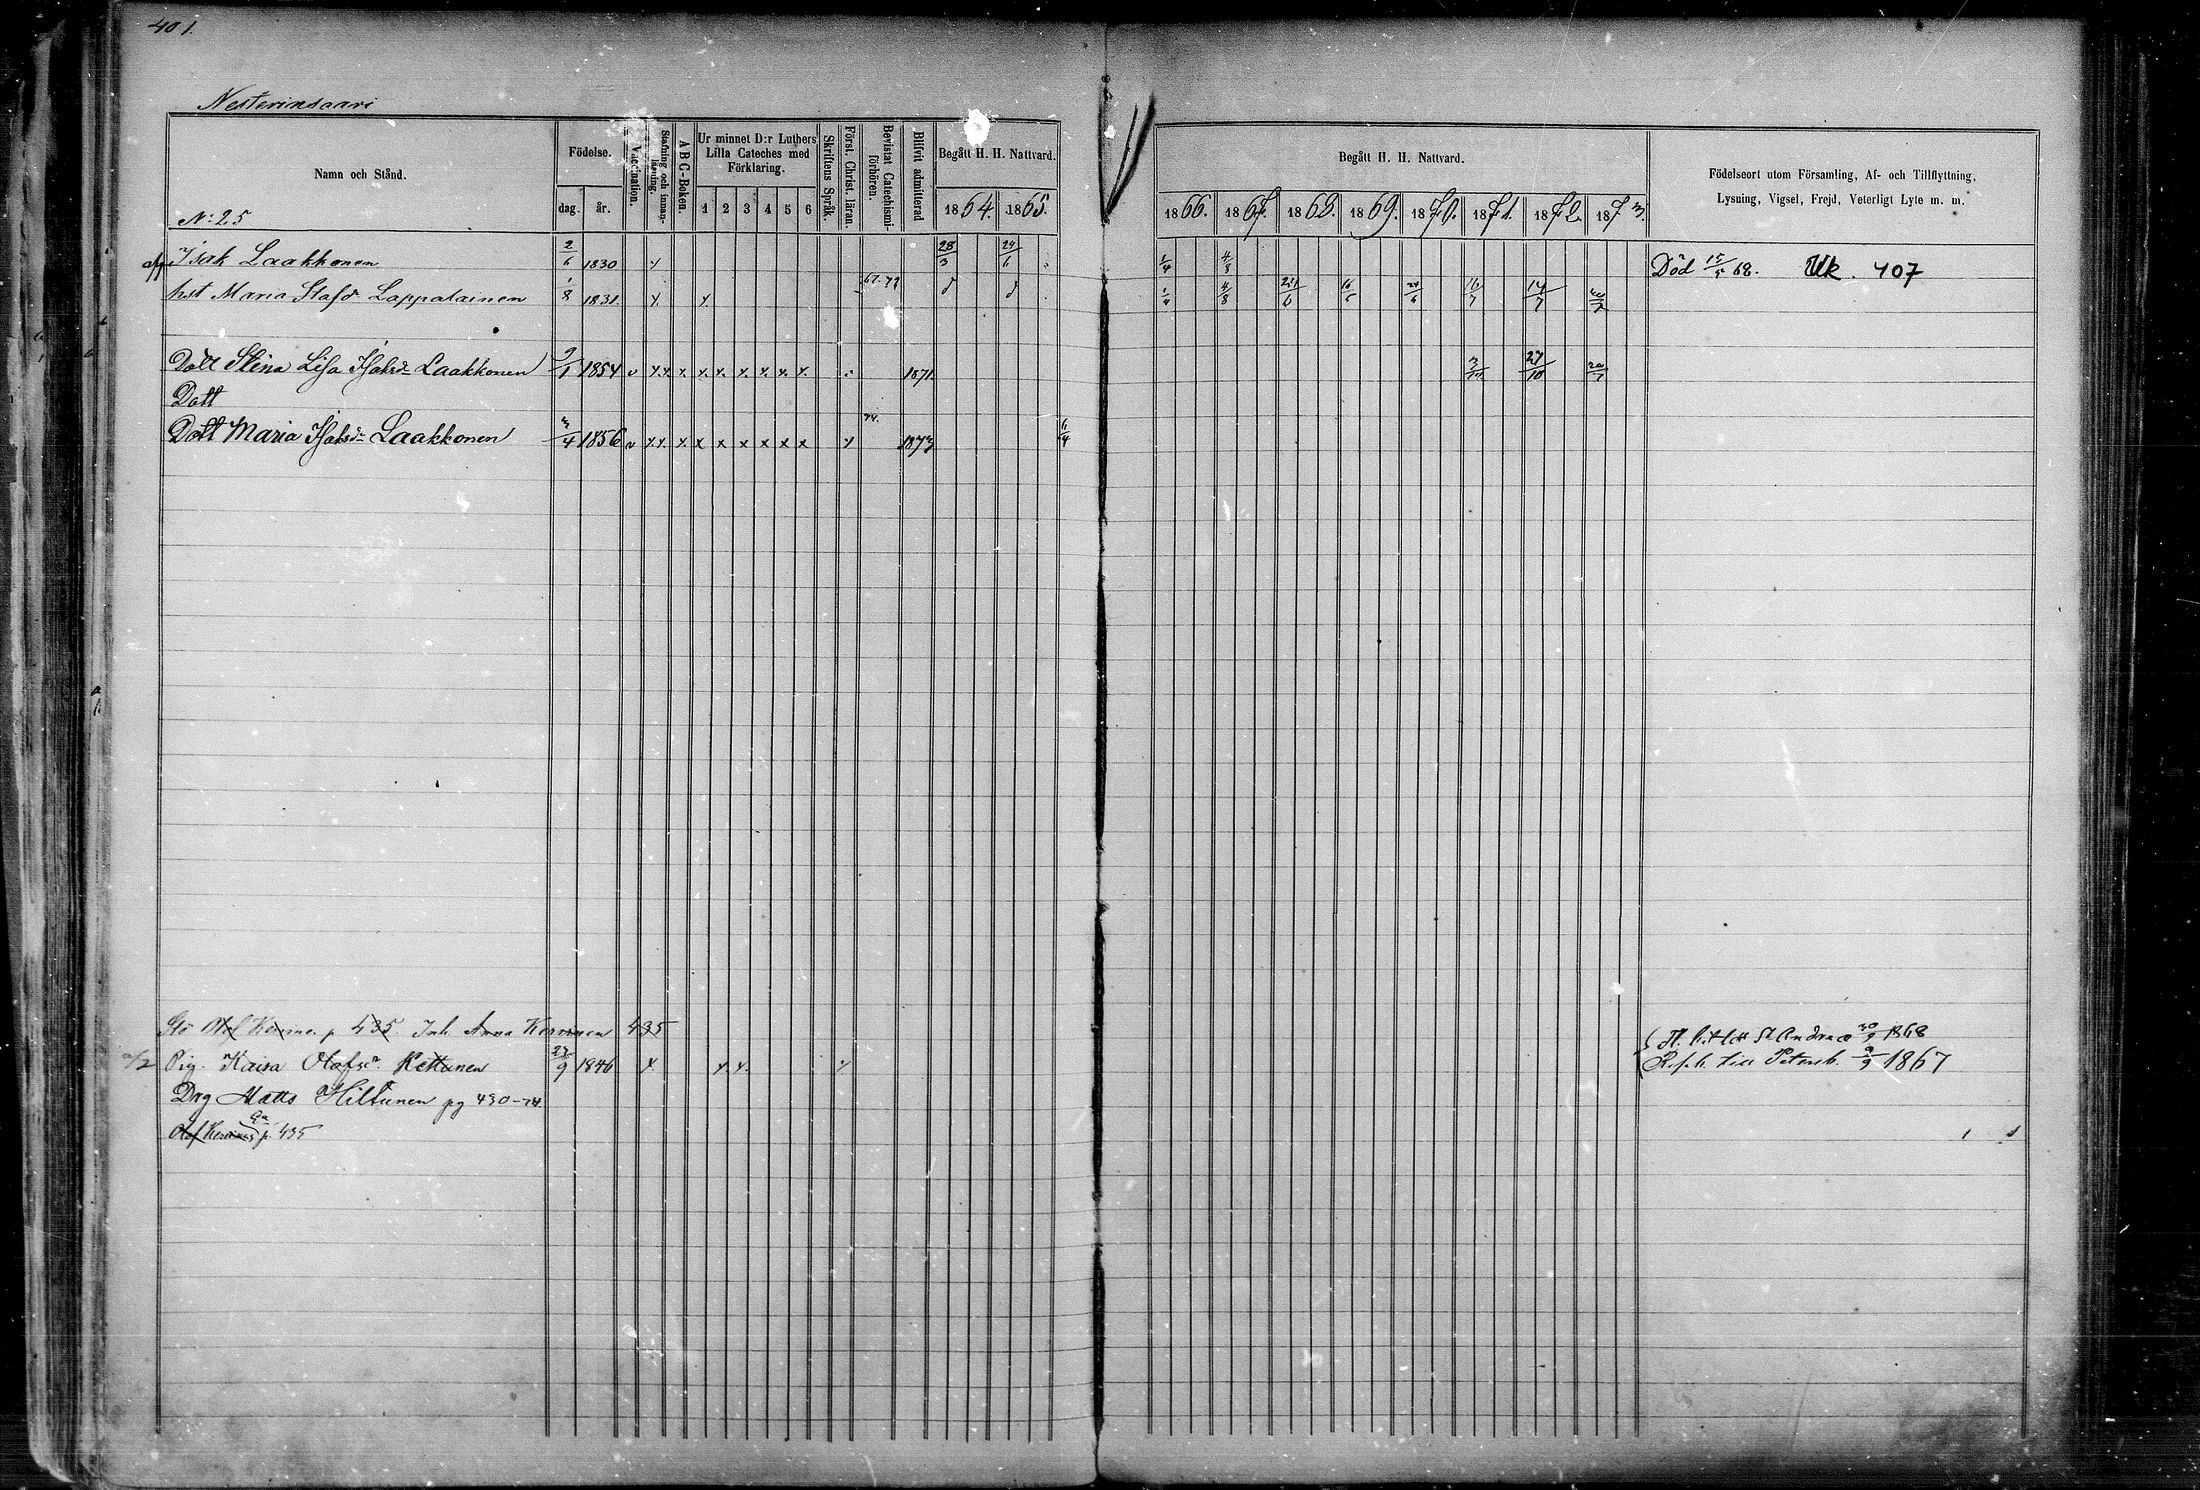 401.
Nesterinsaari
Namn och Stånd.
N: 25
Födelse.
dag. år.
Vaccination.
Stafning och innan-läsning.
A B C-Boken.
Ur minnet D:r Luthers Lilla Cateches med Förklaring.
1 2 3 4 5 6
Skriftens Språk.
Först. Christ. läran.
Bevistat Catechismi-förhören.
Blifvit admitterad
Begått H. H. Nattvard.
1864. 1865.
Begått H. H. Nattvard.
1866. 1867. 1868. 1869. 1870. 1871. 1872. 1873.
Födelseort utom Församling, Af- och Tillflyttning,
Lysning, Vigsel, Frejd, Veterligt Lyte m. m.
Isak Laakkonen 2/6 1830 x 28/3 24/6 1/4 4/8 Död 15/5 68. Uk. 407
hst Maria Stafdr Lappalainen 1/8 1831. x x 67. 72 1/4 4/8 24/6 16/5 24/6 16/7 14/7
Dott Stina Lisa Isaksdr Laakkonen 9/1 1854 v x x x x x x x x x 1871. 27/10 20/7
Dott
Dott Maria Isaksdr Laakkonen 3/4 1856 v x x x x x x x x x x 74. 1873 6/4
Olof p 435. Inh. Anna Kervinen 435
St Andreæ 30/9 1868
Pig. Kaisa Olofsdr Kettunen 23/9 1846 x x x x till Petersb. 9/9 1867
Drg Matts Hiltunen pg 430-74.
Olof Kervinen p. 435